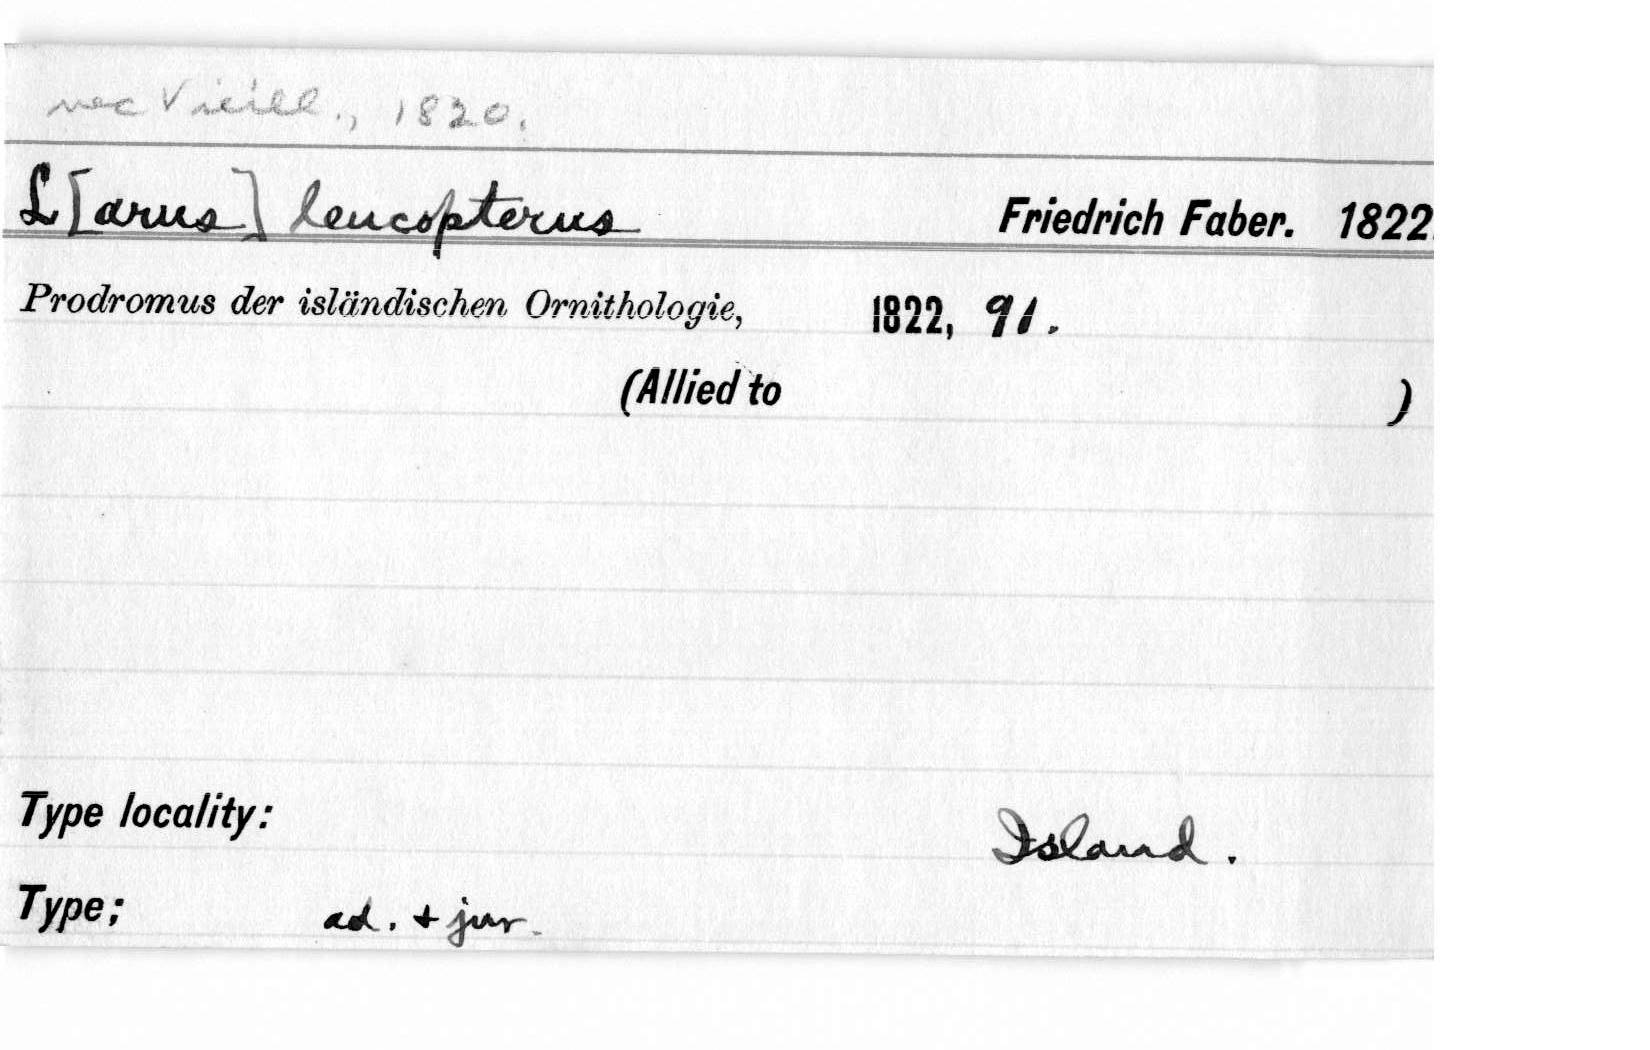 nec Vieill., 1820.
L[arus] leucopterus Friedrich Faber. 1822.
Prodromus der isländischen Ornithologie, 1822, 91.
(Allied to )
Type locality: Island.
Type; ad. + juv.